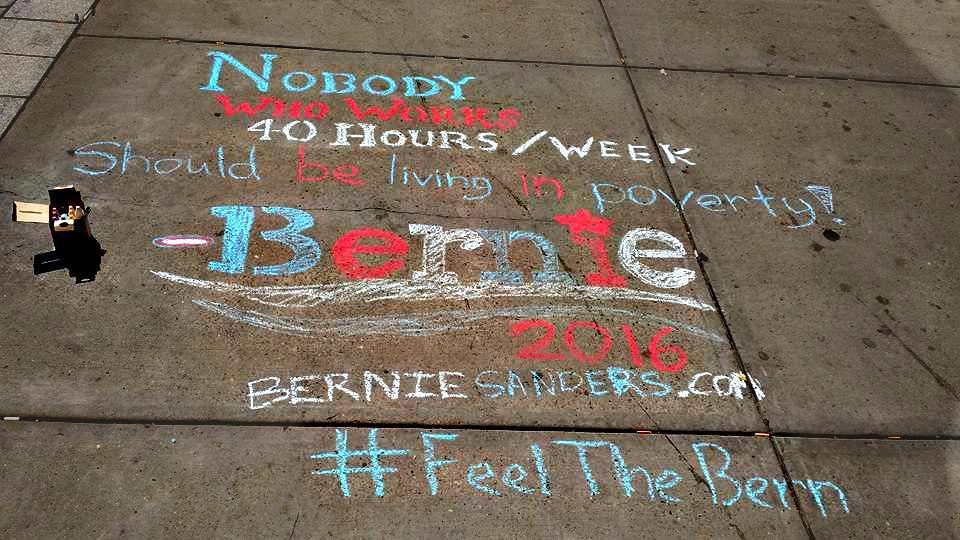 NOBODY
WHO WORKS
40 HOURS/WEEK
Should be living in poverty!
-Bernie
2016
BERNIESANDERS.com
#FeelTheBern